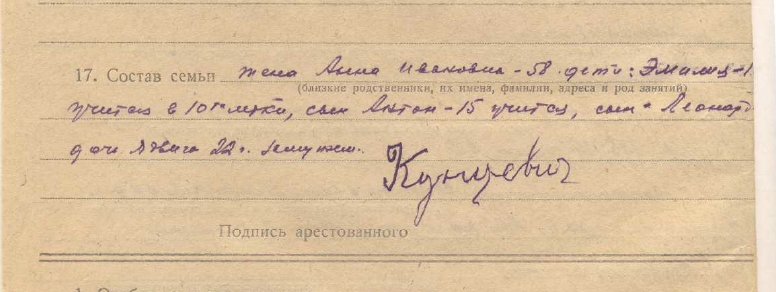 17. Состав семьи жена Анна Ивановна - 58. дети: Эмилия - 1
(близкие родственники, их имена, фамилии, адреса и род занятий)
учится в 10 сын Антон - 15 учится, сын - Леонард
доч. Ядвига 22 г. замужем.
Кунцевич
Подпись арестованного